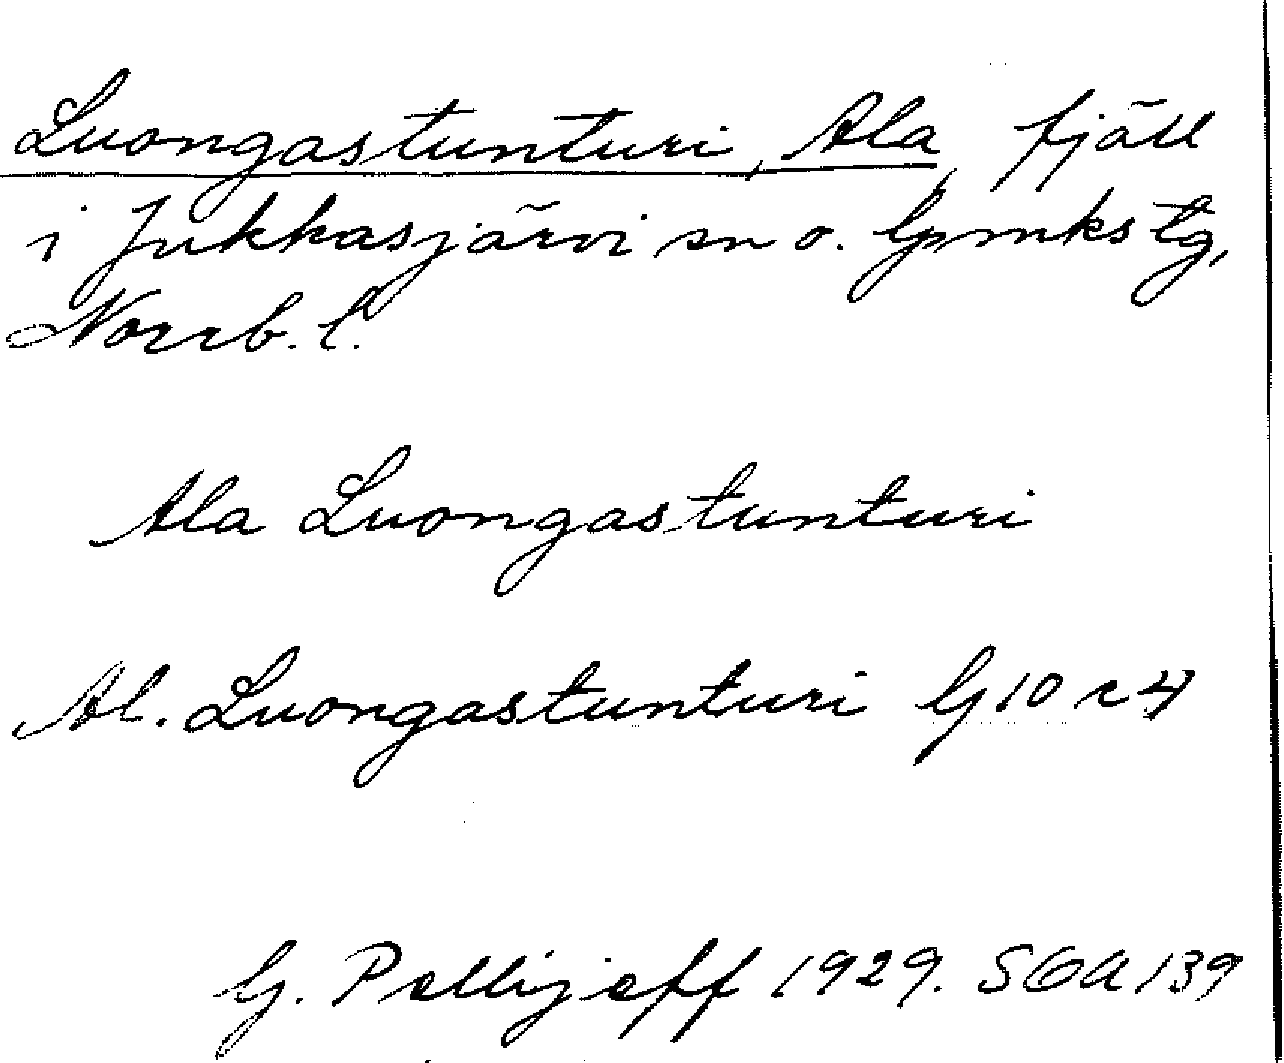 Luongastunturi, Ala fjäll
i Jukkasjärvi sn o. lpmkstg,
Norrb. l.
Ala Luongastunturi
Al. Luongastunturi G 10 c 4
G. Pellijeff 1929. SOA 139